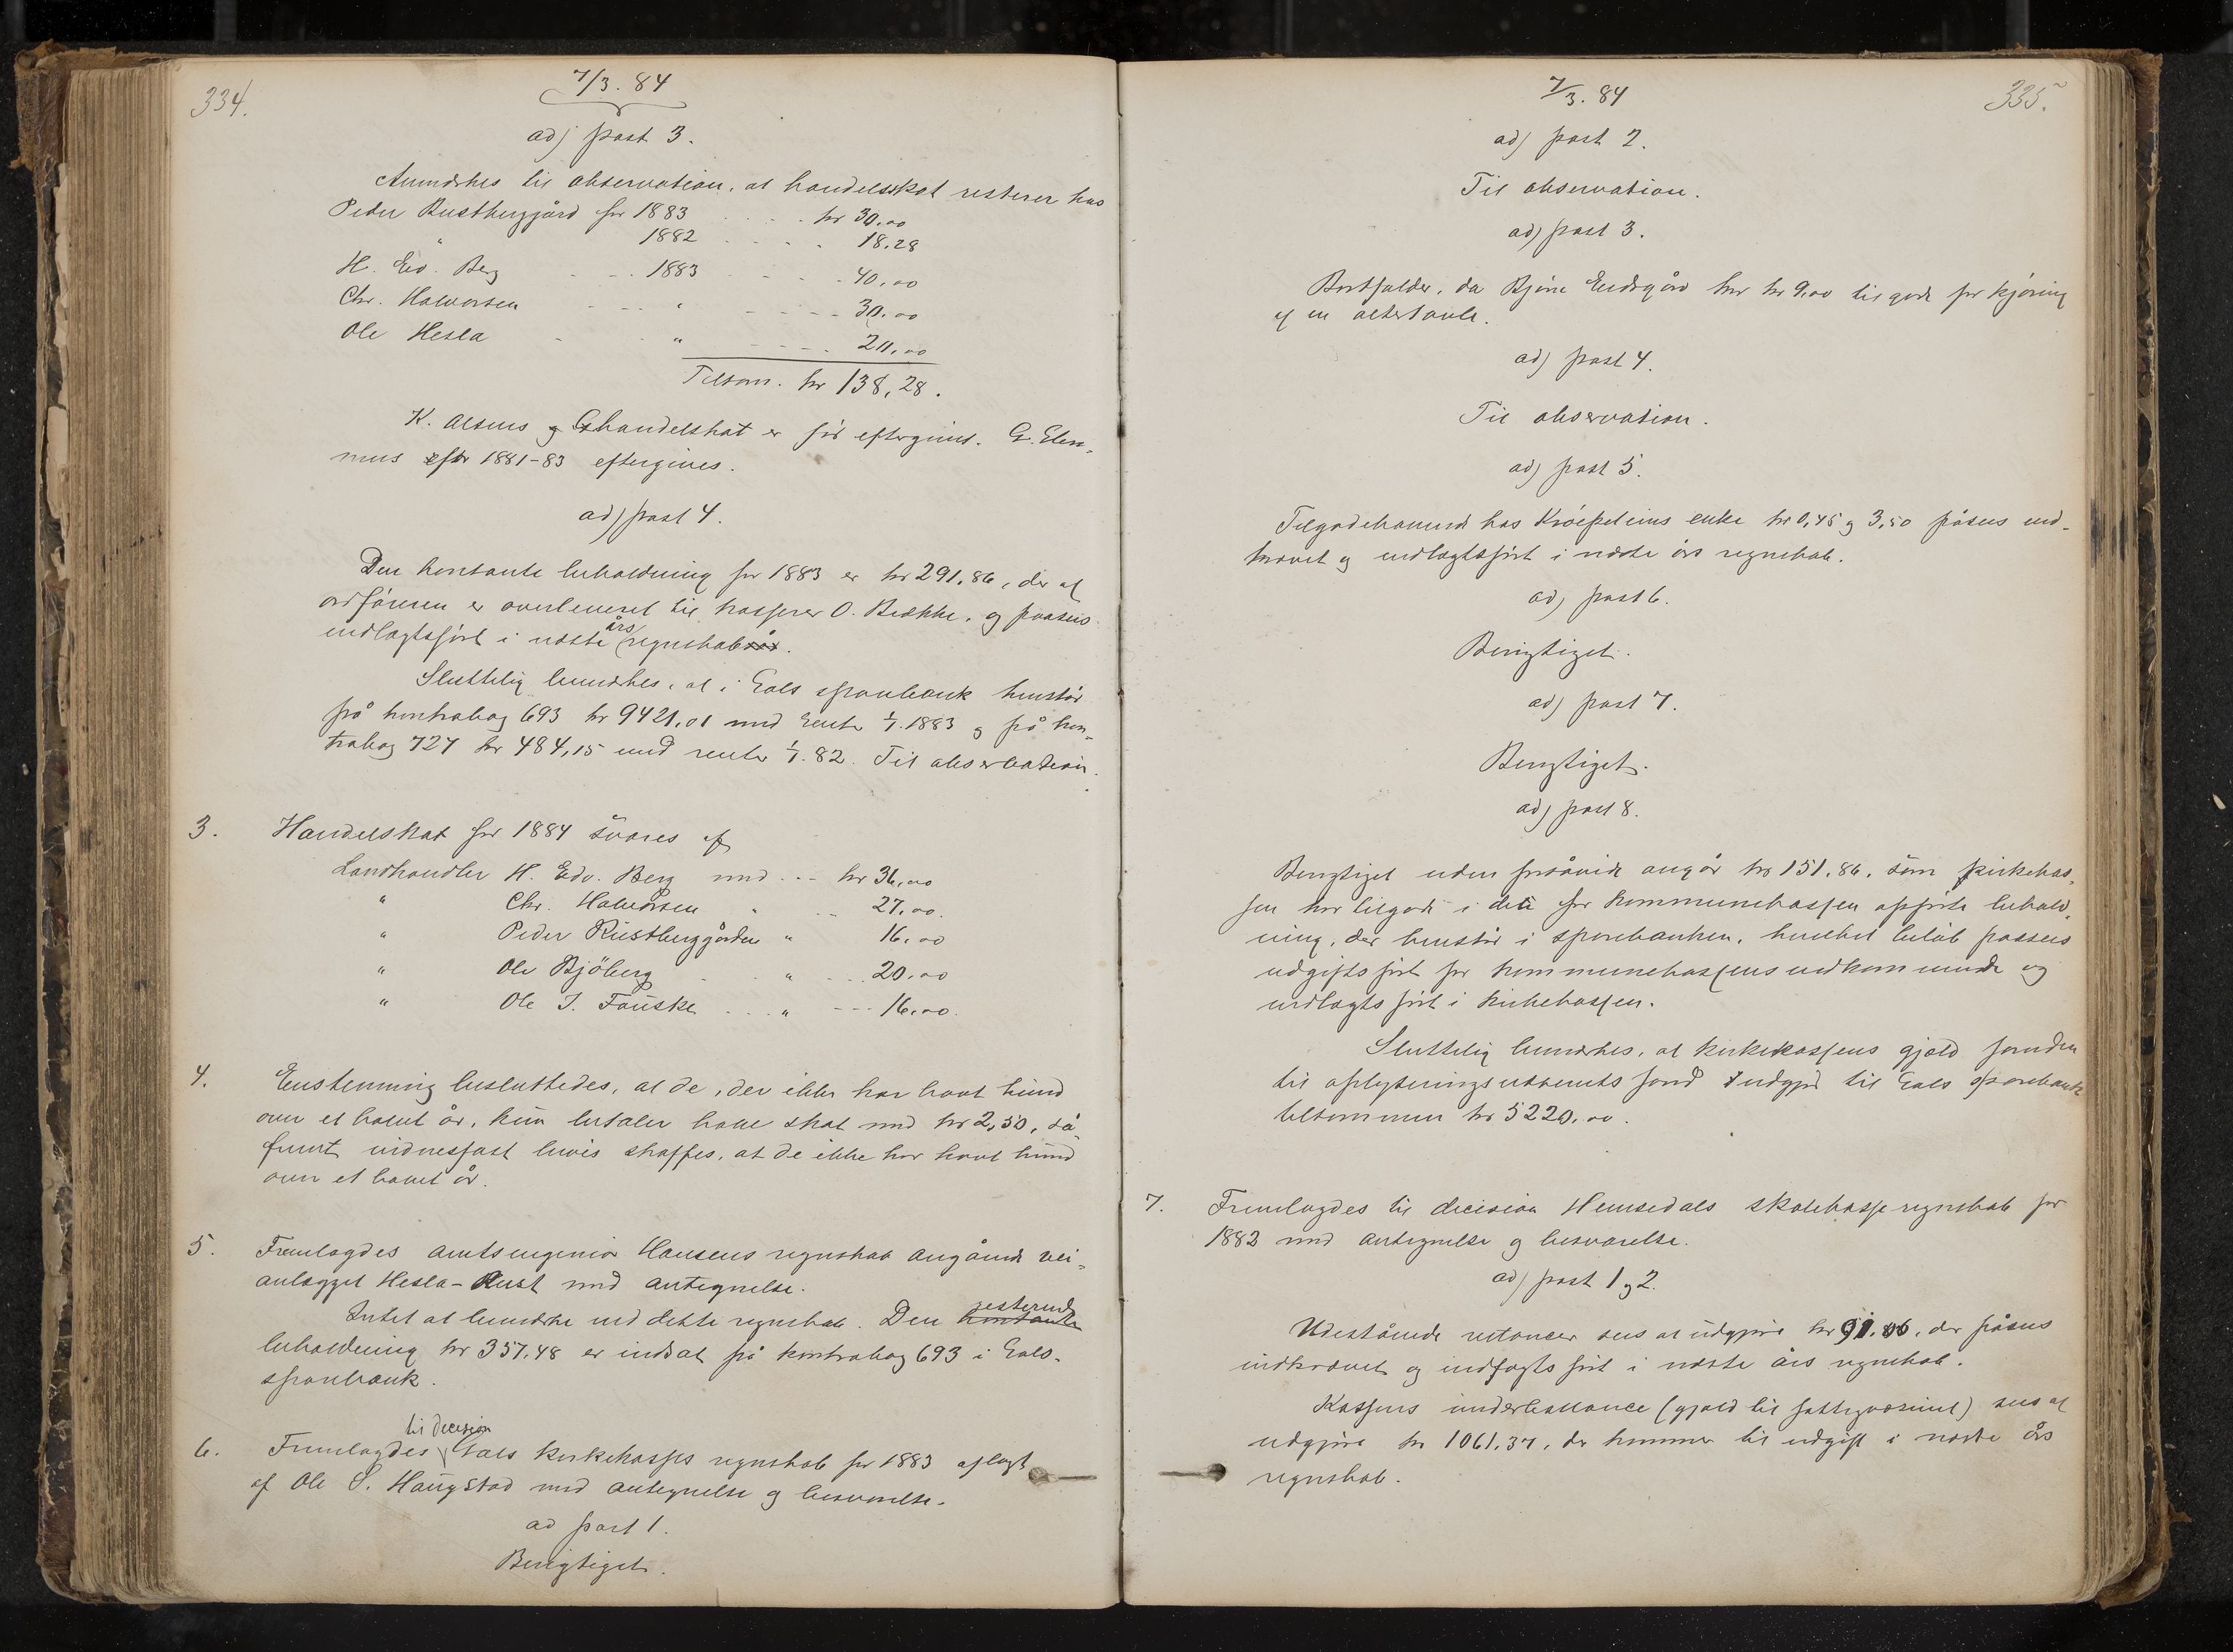 334.
7/3. 84
ad) post 3.
Anmærkes til observation, at handelsskat resterer hos
Peder Rustberggård for 1883 . . . . kr 30.00
" 1882 . . . . 18.28
H. Ed. Berg - - . 1883 - - - - 40,00
Chr. Halvorsen - - - " - - - - - 30.00
Ole Hesla - - " - - - - 20,00
Tilsam. kr 138,28.
K. Alsens og handelskat er før eftergivet. G. Elen-
mus for 1881-83 eftergives.
ad) post 4.
Den kontante beholdning for 1883 er kr 291.86, der af
ordføreren er overleveret til kasserer O. Brække, og paasees
indtægtsført i næste års regnskab.
Sluttelig bemærkes, at i Gols sparebank henstår
på kontrabog 693 kr 9421.01 med rente 1/7. 1883 og på kon-
trabog 727 kr 484,15 med renter 1/7. 82. Til observation.
3. Handelskat for 1884 svares af
Landhandler H. Edv. Berg med - - - kr 36,00
" Chr. Halvorsen " - - 27,00.
" Peder Rustberggården " 16,00
" Ole Bjöberg - - " - - 20,00
" Ole J. Fauske - - - " - - - 16,00.
4. Enstemmig besluttedes, at de, der ikke har havt hund
over et halvt år, kun betaler halv skat med kr 2,50, så
fremt vidnesfast bevis skaffes, at de ikke har havt hund
over et halvt år.
5. Fremlagdes amtsingeniør Hansens regnskab angående vei-
anlægget Hesla-Rust med antegnelse.
Intet at bemærke ved dette regnskab. Den kontante resterende
beholdning kr 357.48 er indsat på kontrabog 693 i Gols
sparebank.
6. Fremlagdes til decision Gols kirkekasses regnskab for 1883 aflagt
af Ole S. Haugstad med antegnelse og besvarelse.
ad post 1.
Berigtiget.
7/3. 84
335.
ad) post 2.
Til observation.
ad) post 3.
Bortfalder, da Bjørn Endsgård har kr 9,00 tilgode for kjøring
af en altertavle.
ad) post 4.
Til observation.
ad) post 5.
Tilgodehavende hos enke kr 0,45 og 3,50 påsees ind-
krævet og indtægtsført i næste års regnskab.
ad) post 6.
Berigtiget.
ad) post 7.
Berigtiget.
ad) post 8.
Berigtiget uden forsåvidt angår kr 151.86, som kirkekas-
sen har tilgode i den for kommunekassen opførte behold-
ning, der henstår i sparebanken, hvilket beløb paasees
udgiftsført for kommunekassens vedkommende og
indtægtsført i kirkekassen.
Sluttelig bemærkes, at kirkekassens gjæld foruden
til oplysningsvæsenets fond udgjør til Gols sparebank
tilsammen kr 5220.00.
7. Fremlagdes til decision Hemsedals skolekasseregnskab for
1882 med antegnelse og besvarelse.
ad) post 1 og 2.
Udestående restancer sees at udgjøre kr 91.06, der påsees
indkrævet og indtægtsført i næste års regnskab.
Kassens underballance (gjæld til fattigvæsenet) sees at
udgjøre kr 1061.37, der kommer til udgift i næste års
regnskab.